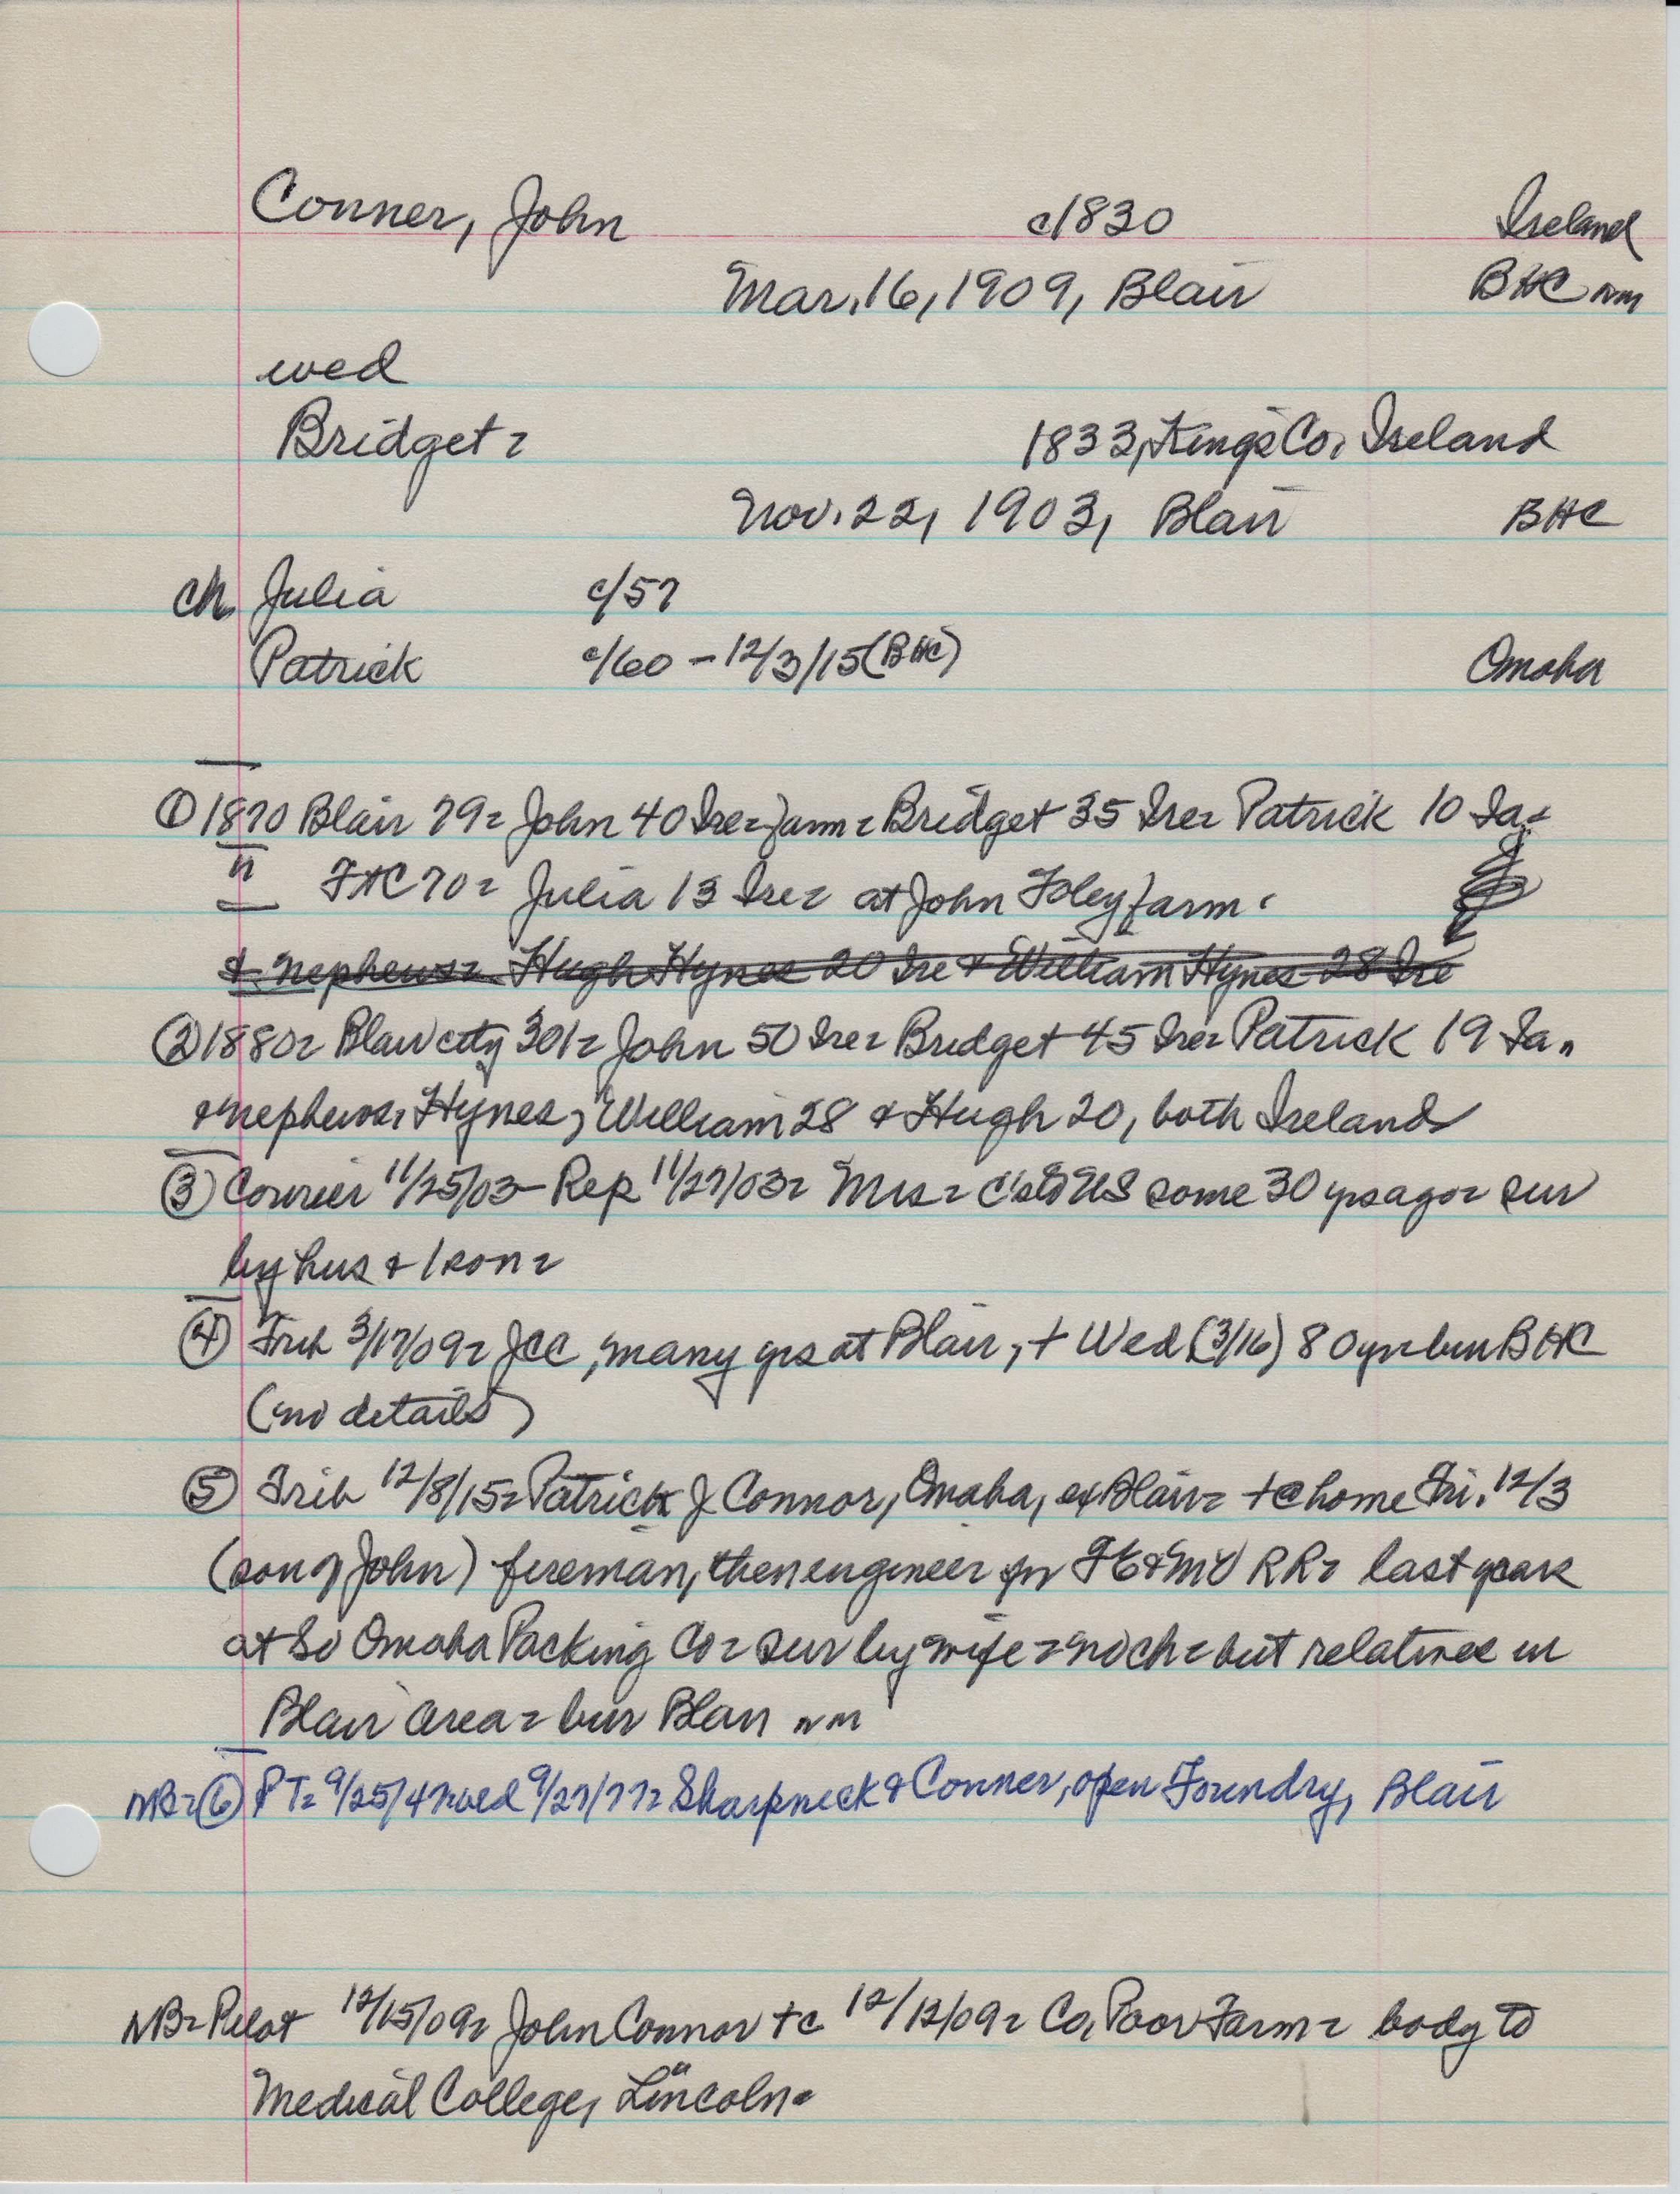 Conner, John c1830 Ireland
Mar. 16, 1909, Blair BHC nm
wed
Bridget = 1833, Kings Co. Ireland
Nov. 22, 1903, Blair BHC
ch Julia c/57
Patrick c/60 - 12/3/15 (BHC) Omaha
① 1870 Blair 79 = John 40 Ire = farm = Bridget 35 Ire = Patrick 10 Ia =
" FHC 70 = Julia 13 Ire = at John Foley farm
& nephews = Hugh Hynes 20 Ire & William Hynes 28 Ire
② 1880 = Blair city 301 = John 50 Ire = Bridget 45 Ire = Patrick 19 Ia.
& nephews, Hynes, William 28 & Hugh 20, both Ireland
③ Courier 11/25/03 - Rep 11/27/03 = Mrs = C to US some 30 yrs ago = sur
by hus & 1 son =
④ Trib 3/17/09 = JCC, many yrs at Blair, + Wed (3/16) 80 yr = bur BHC
(no details)
⑤ Trib 12/8/15 = Patrick J Connor, Omaha, ex Blair = + @ home Fri. 12/3
(son of John) fireman, then engineer for FE&MV RR = last years
at So Omaha Packing Co = sur by wife = no ch = but relatives in
Blair area = bur Blair nm
NB = ⑥ PT = 9/25/47 wed 9/27/77 = Sharpneck & Conner, open Foundry, Blair
NB = Pilot 12/15/09 = John Connor + c 12/12/09 = Co. Poor Farm = body to
Medical College, Lincoln =